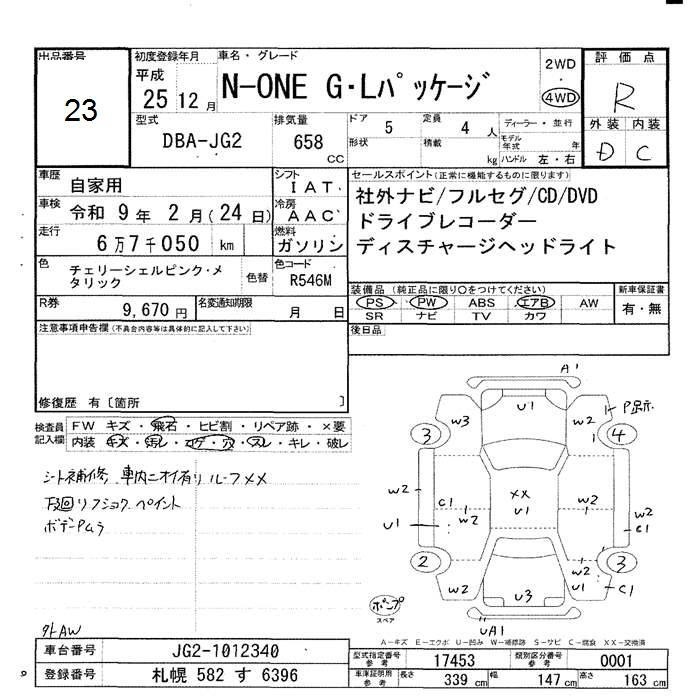 出品番号
23
初度登録年月
平成
25 12 月
車名・グレード
N-ONE G・Lパッケージ
2WD
・
4WD
評価点
R
外装 内装
D C
型式
DBA-JG2
排気量
658
CC
ドア
5
定員
4 人
ディーラー・並行
形状
積載
kg
モデル
年式
年
ハンドル 左・右
車歴
自家用
シフト
IAT
車検
令和 9 年 2 月(24 日)
冷房
AAC
走行
6万7千050 km
燃料
ガソリン
色
チェリーシェルピンク・メ
タリック
色替
色コード
R546M
R券
9,670 円
名変通知期限
月 日
セールスポイント(正常に機能するものに限ります)
社外ナビ/フルセグ/CD/DVD
ドライブレコーダー
ディスチャージヘッドライト
装備品(純正品に限り○をつけてください)
PS PW ABS エアB AW
SR ナビ TV カワ
新車保証書
有・無
後日品
注意事項申告欄(不具合内容等は具体的に記入して下さい)
修復歴 有〔箇所 〕
検査員
記入欄
FW キズ・飛石・ヒビ割・リペア跡・×要
内装 キズ・汚レ・コゲ・穴・スレ・キレ・破レ
シート補修 車内ニオイ有り ルーフXX
下廻リフショク ペイント
ボデーPムラ
外AW
A1
U1
W3
W2
P跡
3
4
W2
C1
W2
U1
XX
U1
W2
W2
C1
2
3
W2
W2
U1
C1
U3
ポンプ
スペア
UA1
A-キズ E-エクボ U-凹み W-補修跡 S-サビ C-腐食 XX-交換済
車台番号
JG2-1012340
登録番号
札幌 582 す 6396
型式指定番号
参考
17453
類別区分番号
参考
0001
車庫証明用
参考
長さ
339 cm
幅
147 cm
高さ
163 cm